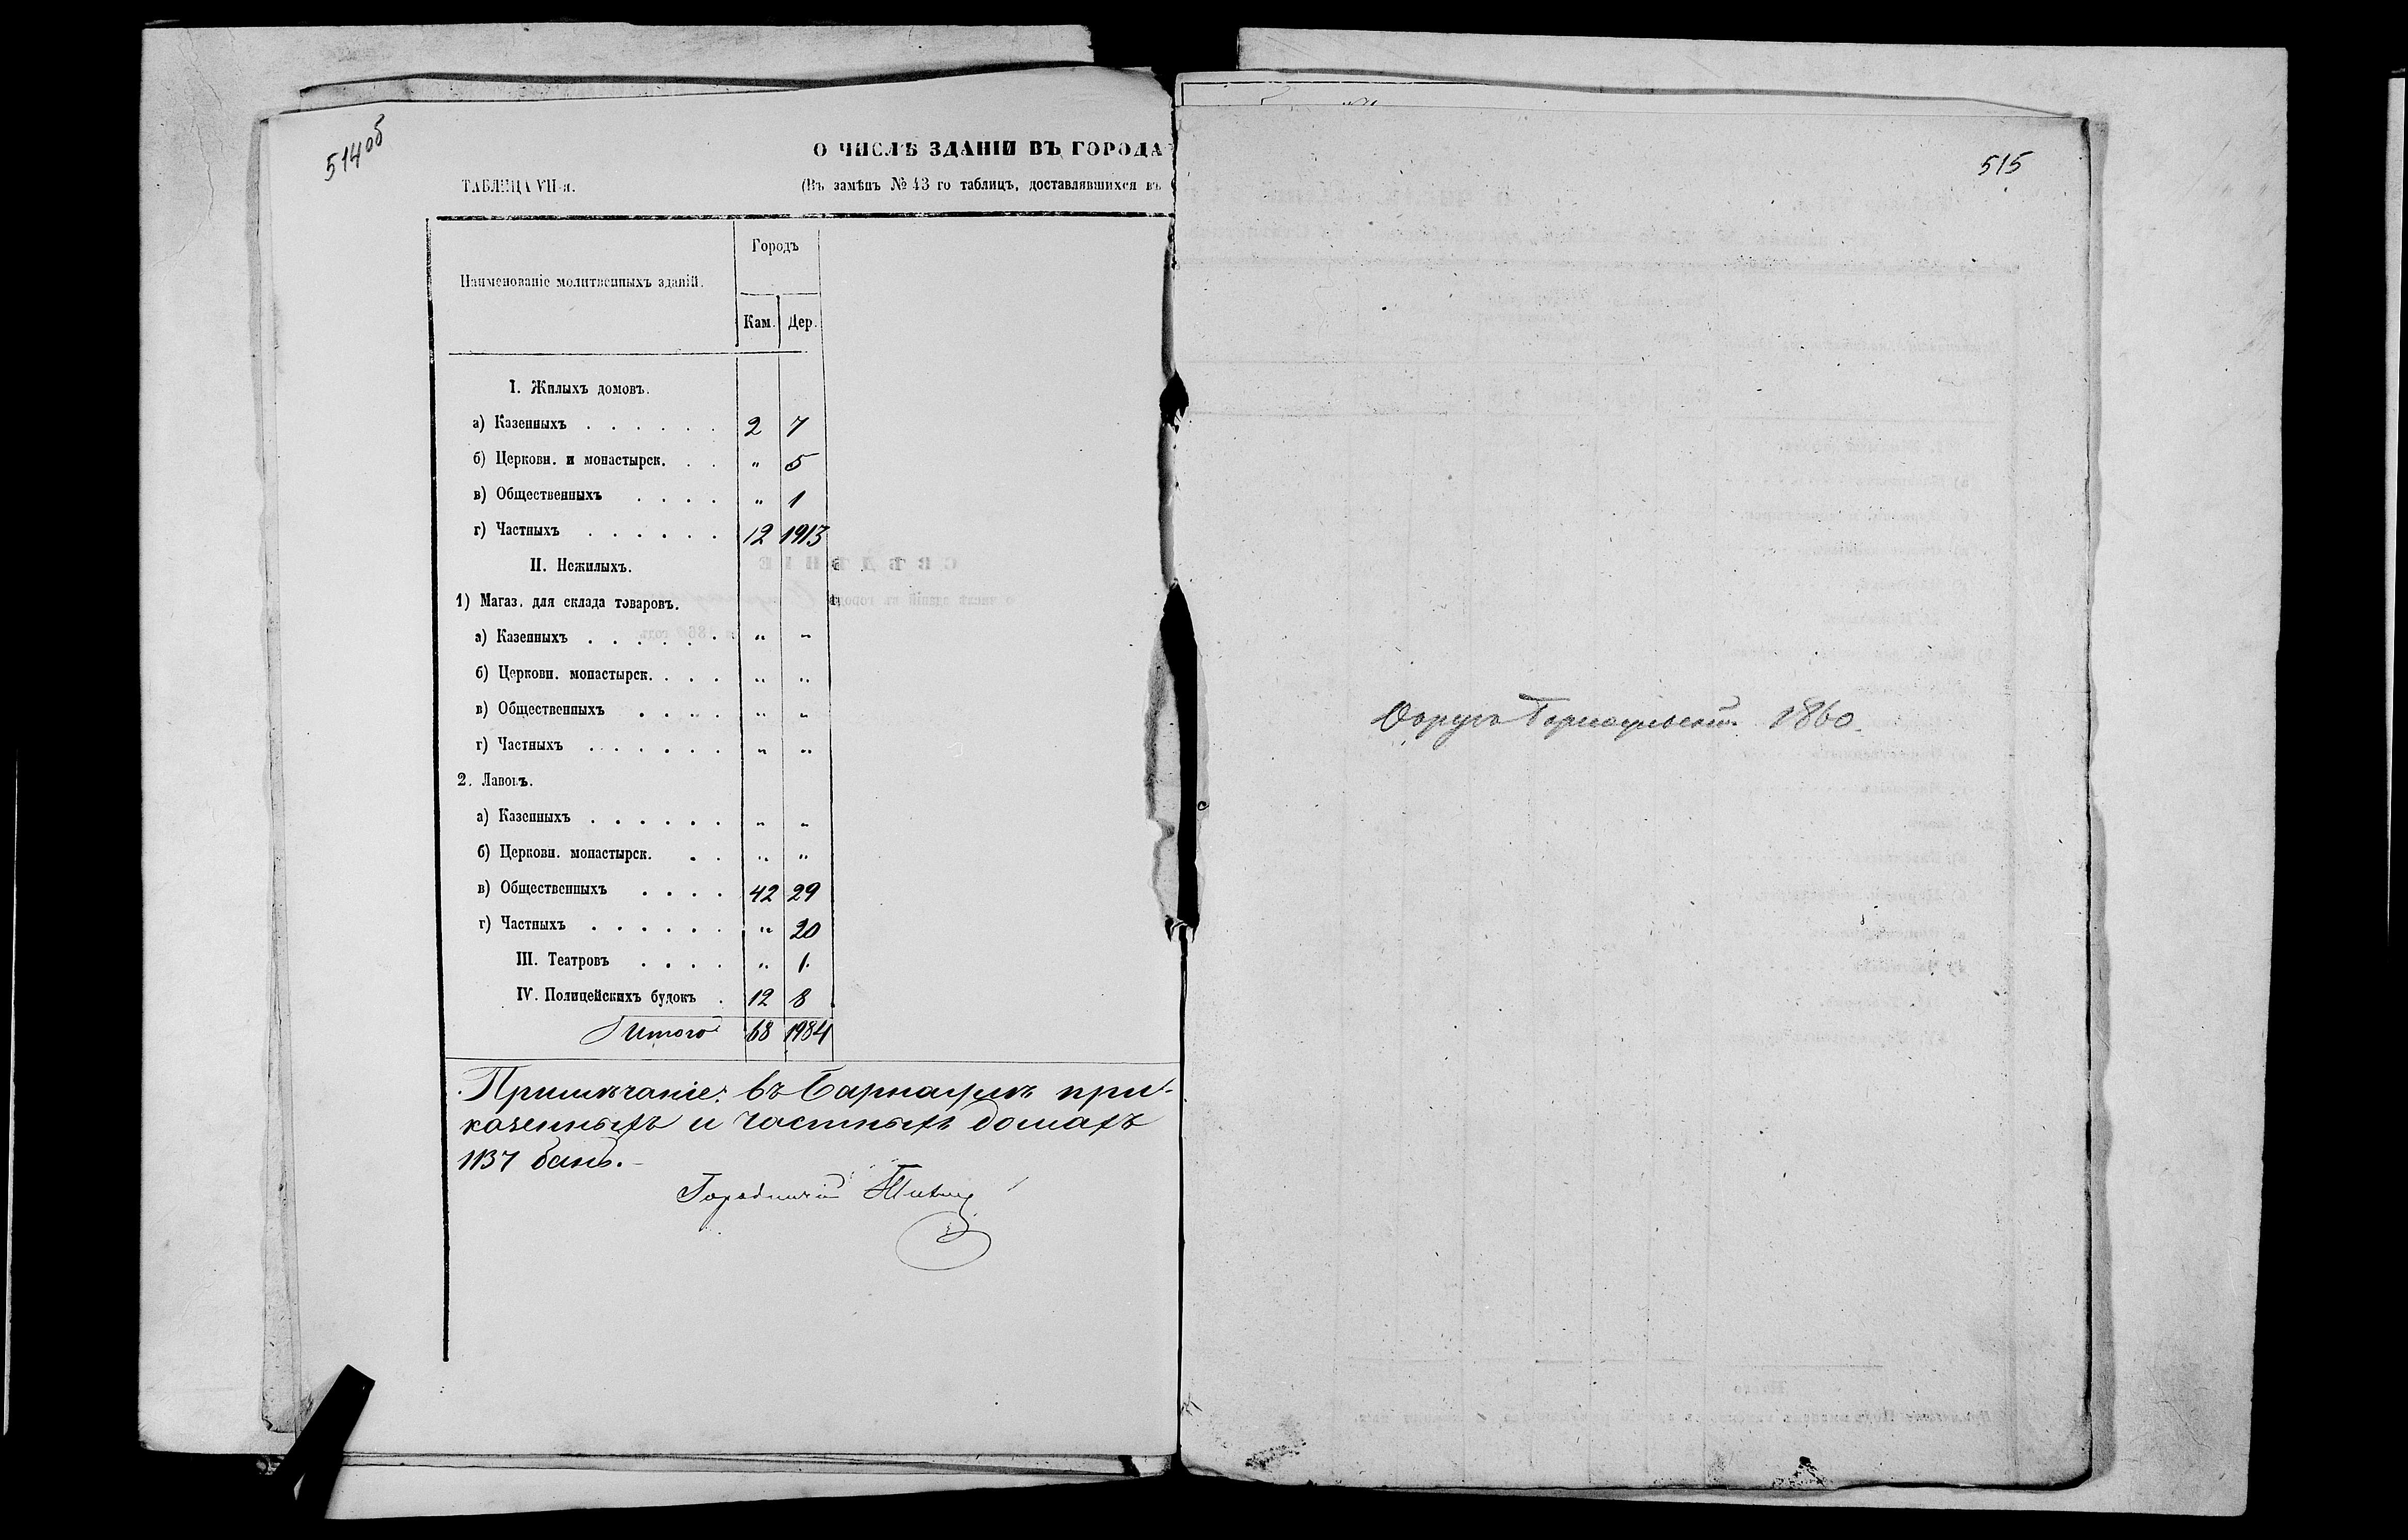 514 об
О ЧИСЛѢ ЗДАНІЙ ВЪ ГОРОДА
ТАБЛИЦА VII-я.
(Въ замѣнъ № 43 го таблицъ, доставлявшихся въ
Наименованіе молитвенныхъ зданій.
Городъ
Кам. Дер.
I. Жилыхъ домовъ.
а) Казенныхъ . . . . . . 2 7
б) Церковн. и монастырск. . . „ 5
в) Общественныхъ . . . . „ 1
г) Частныхъ . . . . . . 12 1913
II. Нежилыхъ.
1) Магаз. для склада товаровъ.
а) Казенныхъ . . . . . . „ „
б) Церковн. монастырск. . . . „ „
в) Общественныхъ . . . . „ „
г) Частныхъ . . . . . . „ „
2. Лавокъ.
а) Казенныхъ . . . . . . „ „
б) Церковн. монастырск. . . „ „
в) Общественныхъ . . . . 42 29
г) Частныхъ . . . . . . „ 20
III. Театровъ . . . . „ 1.
IV. Полицейскихъ будокъ . 12 8
Итого 68 1984
Примѣчаніе: въ Барнаулѣ при
казенныхъ и частныхъ домахъ
1137 бань.
Городничій
515
Округъ Барнаульскій 1860.